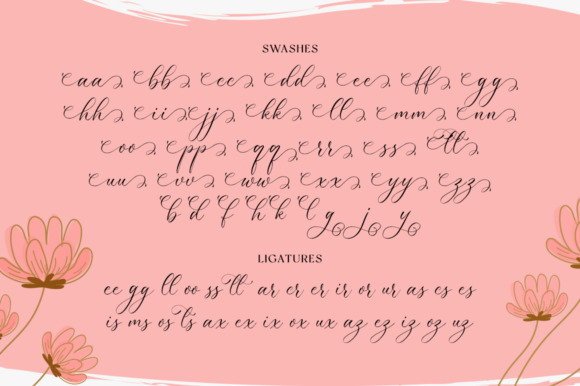 SWASHES
aa, bb, cc, dd, ee, ff, gg,
hh, ii, jj, kk, ll, mm, nn,
oo, pp, qq, rr, ss, tt,
uu, vv, ww, xx, yy, zz,
b d f h k l g j y
LIGATURES
ee gg ll oo ss tt ar er er ir or ur as es es
is ms os ts ax ex ix ox ux az ez iz oz uz